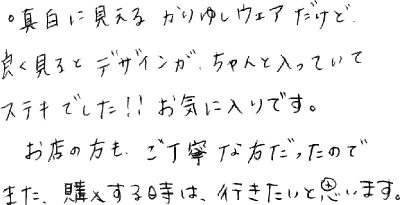 ○真白に見える かりゆしウェア だけど、
良く見ると デザインが、ちゃんと入っていて
ステキでした!! お気に入りです。
お店の方も、ご丁寧な方だったので
また、購入する時は、行きたいと思います。